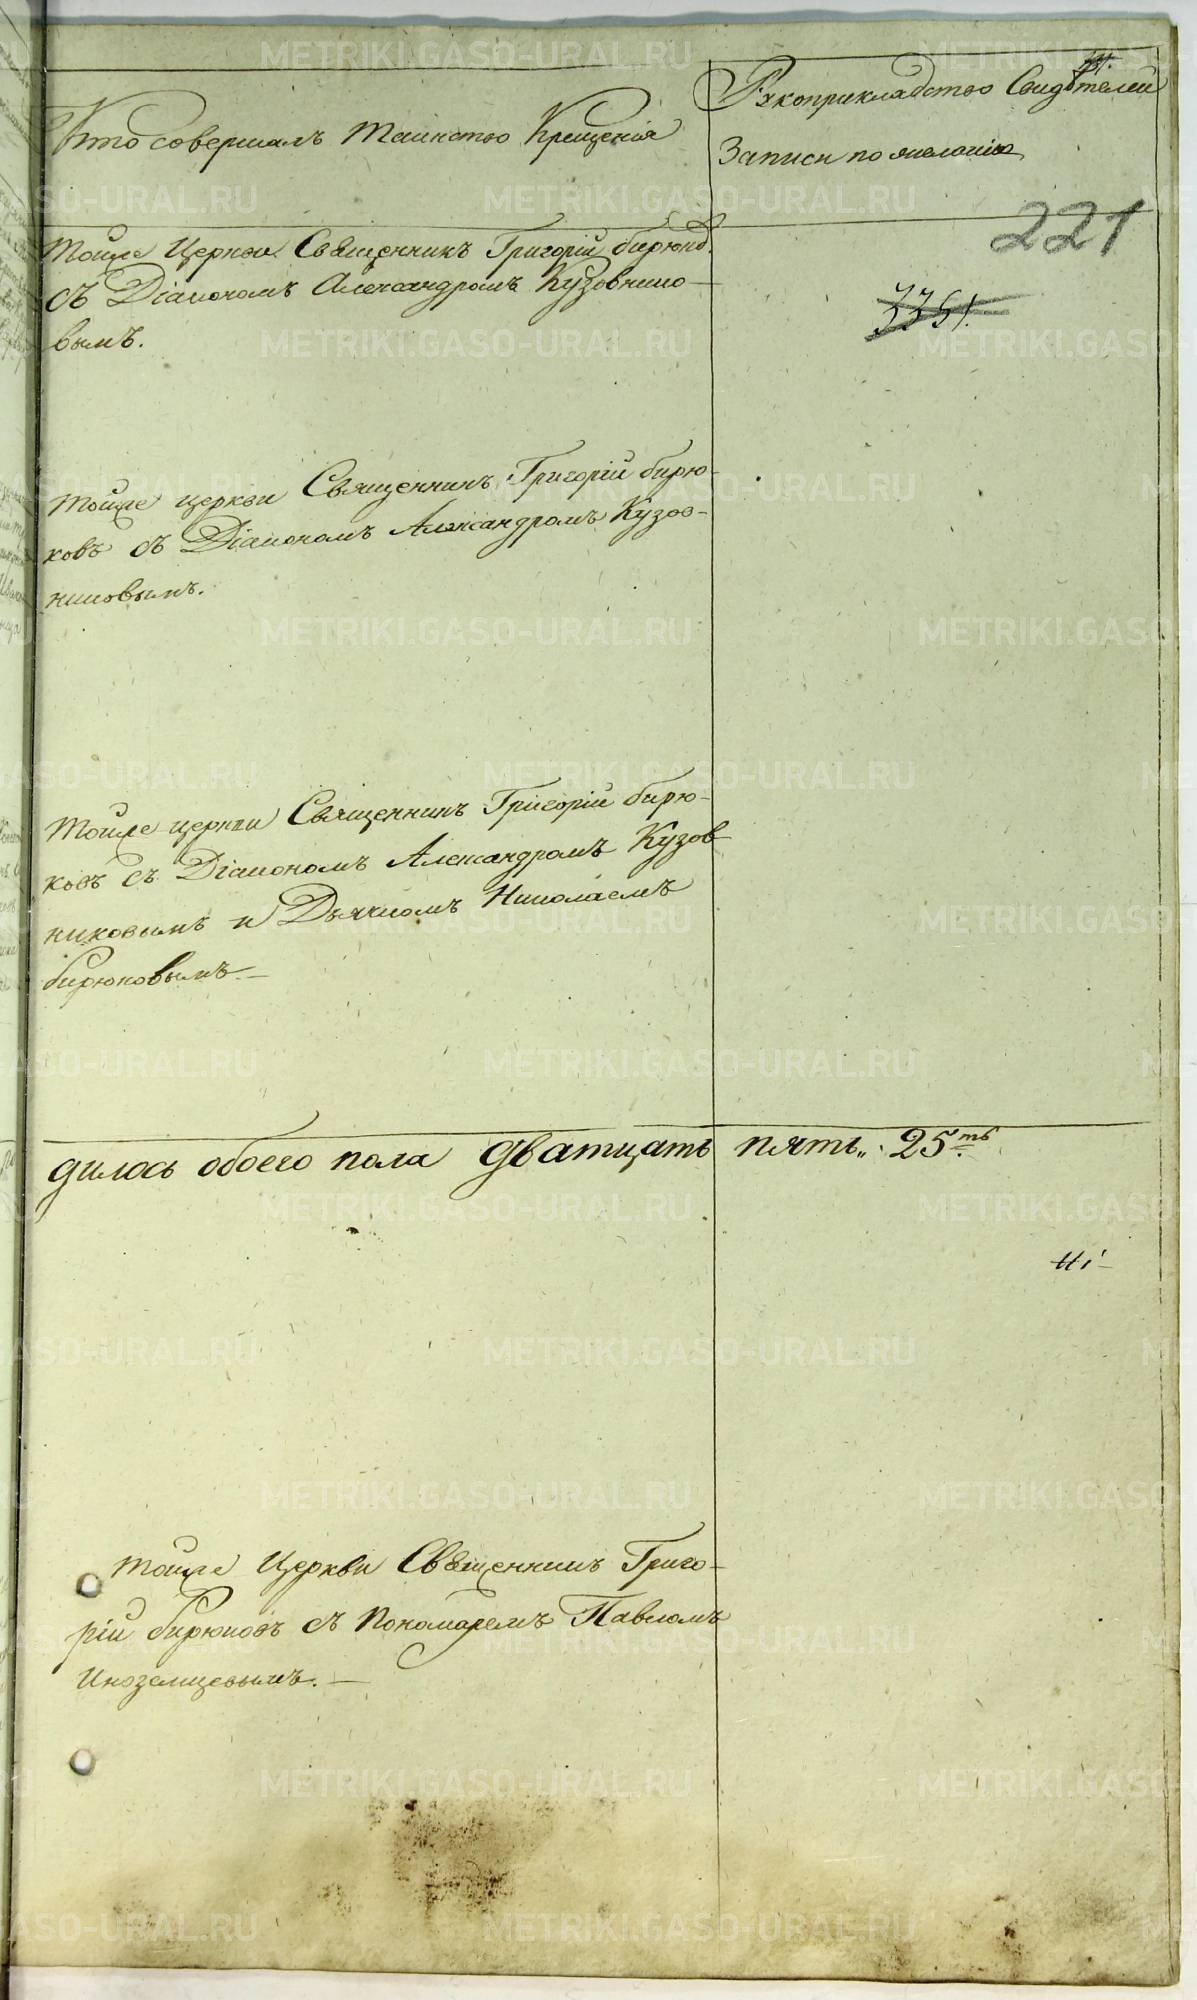 Кто совершалъ таинство Крещенія
Рукоприкладство Свидѣтелей
Записи по желанію
221
3351.
Тойже Церкви Священникъ Григорій бирюко.
съ Діакономъ Александромъ Кузовнико-
вымъ.
тойже церкви Священникъ Григорій бирю-
ковъ съ Діакономъ Александромъ Кузов-
никовымъ.
Тойже церкви Священникъ Григорій бирю-
ковъ съ Діакономъ Александромъ Кузов
никовымъ и Дьячкомъ Николаемъ
бирюковымъ.—
дилось обоего пола дватцать пять„. 25.ть
Тойже Церкви Священникъ Григо-
рій бирюковъ съ Пономаремъ Павломъ
Иноземцевымъ.—
METRIKI.GASO-URAL.RU